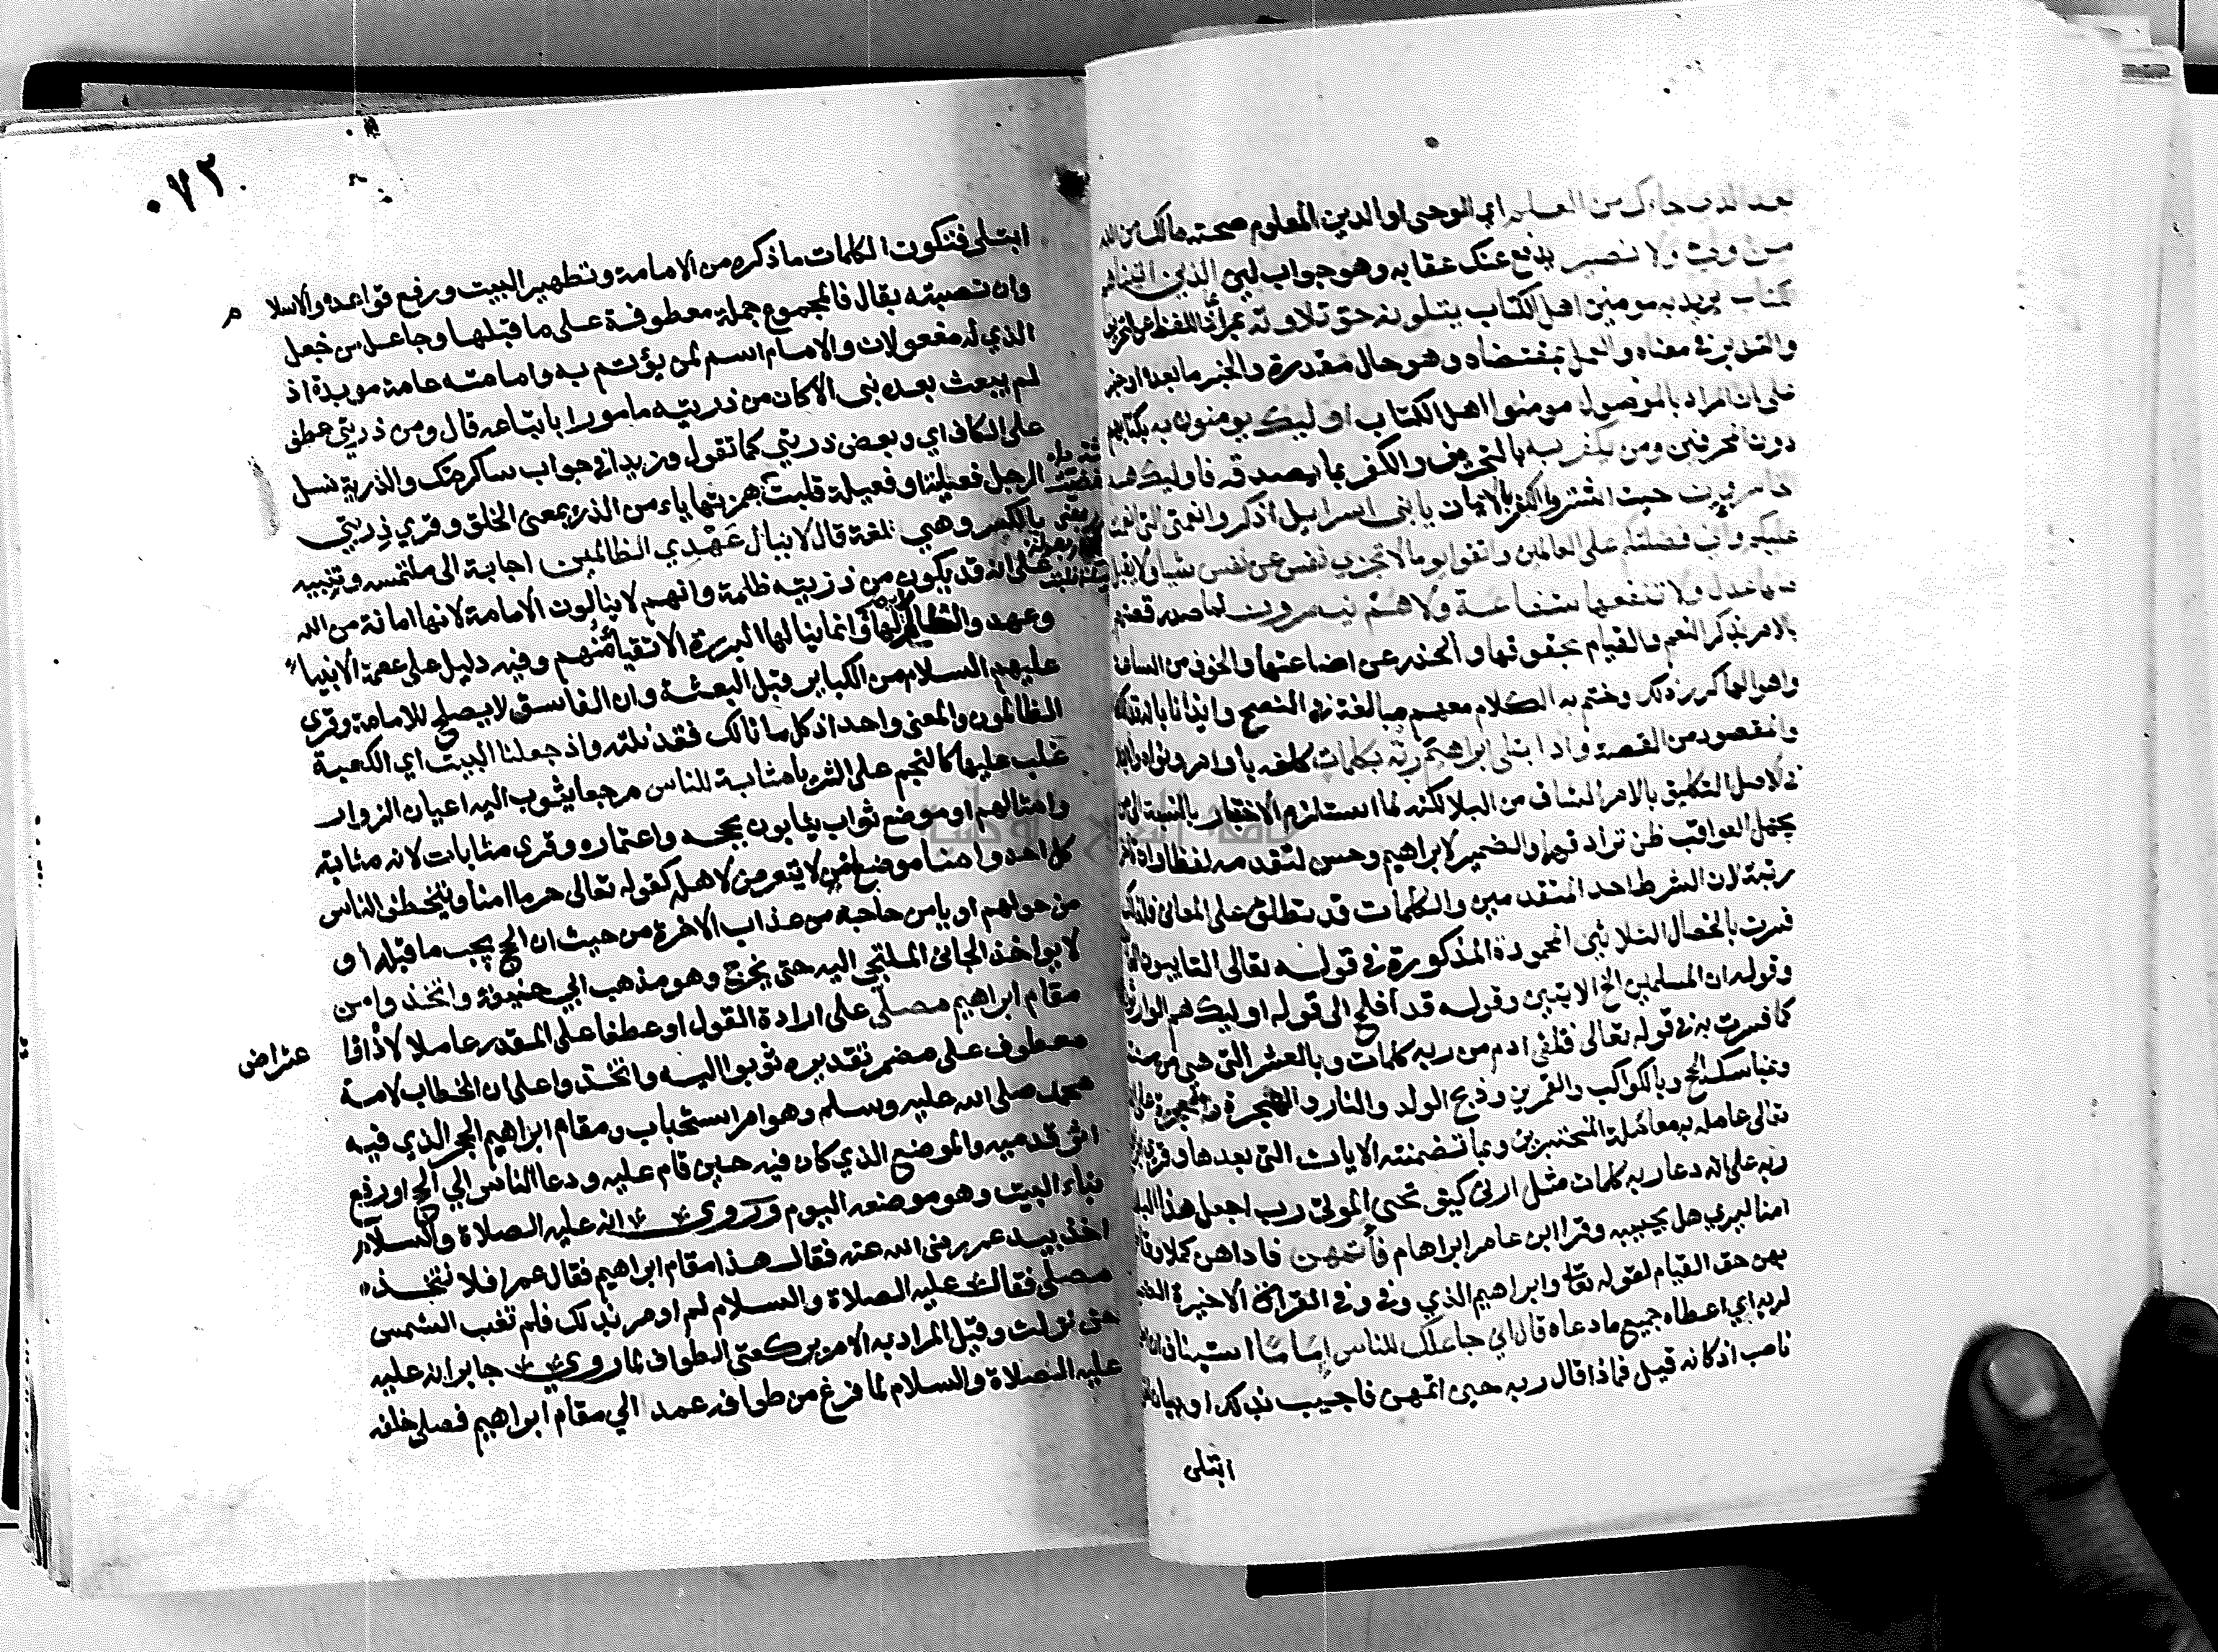 بعد الذي جاءك من العلم اي الوحي او الدين المعلوم صحته مالك من الله
من ولي ولا نصير يدفع عنك عقابه وهو جواب لئن الذين اتيناهم
الكتاب يريد به مومنين اهل الكتاب يتلونه حق تلاوته بمراعاة اللفظ عن التحريف
والتدبر في معناه والعمل بمقتضاه وهو حال مقدرة والخبر ما بعده او خبر
على ان المراد بالموصول مومنوا اهل الكتاب اوليك يومنون به بكتابهم
دون المحرفين ومن يكفر به بالتحريف والكفر بما يصدقه فاوليك هم
الخاسرون حيث اشتروا الكفر بالايمان يا بني اسراييل اذكروا نعمتي التي انعمت
عليكم واني فضلتكم على العالمين واتقوا يوما لا تجزي نفس عن نفس شيا ولا يقبل
منها عدل ولا تنفعها شفاعة ولا هم ينصرون لما صدر قصتهم
بالامر بذكر النعم والقيام بحقوقها والحذر عن اضاعتها والخوف من الساعة
واهوالها كرر ذلك وختم به الكلام معهم مبالغة في النصح وايذانا بانه فذلكة
والمقصود من القصة واذ ابتلى ابراهيم ربه بكلمات كلفه باوامر ونواه وابتلا
في الاصل التكليف بالامر الشاق من البلا لكنه لما استلزم الاختبار بالنسبة الى من
يجهل العواقب ظن ترادفهما والضمير لابراهيم وحسن لتقدمه لفظا وان تاخر
رتبة لان الشرط احد المتقدمين والكلمات قد تطلق على المعاني فلذلك
فسرت بالخصال الثلاثين المحمودة المذكورة في قوله تعالى التايبون العا
وقوله ان المسلمين الخ الايتين وقوله قد افلح الى قوله اوليك هم الوارثون
كما فسرت به في قوله تعالى فتلقى ادم من ربه كلمات وبالعشر التي هي من سننه
وبمناسك الحج وبالكواكب والقمرين وذبح الولد والنار والهجرة على انه
تعالى عامله به معاملة المختبر بهن وبما تضمنته الايات التي بعدها وقري ابرا
ربه على انه دعا ربه بكلمات مثل ارني كيف تحيي الموتى رب اجعل هذا البلد
امنا ليري هل يجيبه وقرا ابن عامر ابراهام فاتمهن فاداهن كملا وقام
بهن حق القيام لقوله تعالى وابراهيم الذي وفى وفي القراة الاخيرة الضمير
لربه اي اعطاه جميع ما دعاه قال اني جاعلك للناس اماما استيناف ان
ناصب اذ كانه قيل فماذا قال ربه حين اتمهن فاجيب بذلك او بيان لقوله
ابتلى
٠٧٢
ابتلى فتكون الكلمات ما ذكره من الامامة وتطهير البيت ورفع قواعده والاسلام
وان نصبته بقال فالمجموع جملة معطوفة على ما قبلها وجاعل من جعل
الذي له مفعولان والامام اسم لمن يؤتم به وامامته عامة موبدة اذ
لم يبعث بعده نبي الا كان من ذريته مامورا باتباعه قال ومن ذريتي عطف
على الكاف اي وبعض ذريتي كما تقول وزيدا في جواب ساكرمك والذرية نسل
الرجل فعلية او فعيلة قلبت همزتها ياء من الذرء بمعنى الخلق وقري ذريتي
بالكسر وهي لغة قال لا ينال عهدي الظالمين اجابة الى ملتمسه وتنبيه
على انه قد يكون من ذريته ظالمة وانهم لا ينالون الامامة لانها امانة من الله
وعهد والظالم لا يصلح لها وانما ينالها البررة الاتقيا منهم وفيه دليل على عصمة الانبيا
عليهم السلام من الكباير قبل البعثة وان الفاسق لا يصلح للامامة وقري
الظالمون والمعنى واحد اذ كل ما نالك فقد نلته واذ جعلنا البيت اي الكعبة
غلب عليها كالنجم على الثريا مثابة للناس مرجعا يثوب اليه اعيان الزوار
وامثالهم او موضع ثواب يثابون بحجه واعتماره وقري مثابات لانه مثابة
كل احد وامنا موضع امن لا يتعرض لاهله كقوله تعالى حرما امنا ويتخطف الناس
من حولهم او يامن حاجه من عذاب الاخرة من حيث ان الحج يجب ما قبله او
لا يواخذ الجاني الملتجي اليه حتى يخرج وهو مذهب ابي حنيفة واتخذوا من
مقام ابراهيم مصلى على ارادة القول او عطفا على المقدر عاملا لاذ او
اعتراض
معطوف على مضمر تقديره توبوا اليه واتخذوا على ان الخطاب لامة
محمد صلى الله عليه وسلم وهو امر استحباب ومقام ابراهيم الحجر الذي فيه
اثر قدميه والموضع الذي كان فيه حين قام عليه ودعا الناس الى الحج او رفع
بناء البيت وهو موضعه اليوم وروى انه عليه الصلاة والسلام
اخذ بيد عمر رضى الله عنه فقال هذا مقام ابراهيم فقال عمر افلا نتخذه
مصلى فقال عليه الصلاة والسلام لم اومر بذلك فلم تغب الشمس
حتى نزلت وقيل المراد به الامر بركعتي الطواف لما روي جابر انه عليه
عليه الصلاة والسلام لما فرغ من طوافه عمد الي مقام ابراهيم فصلى خلفه